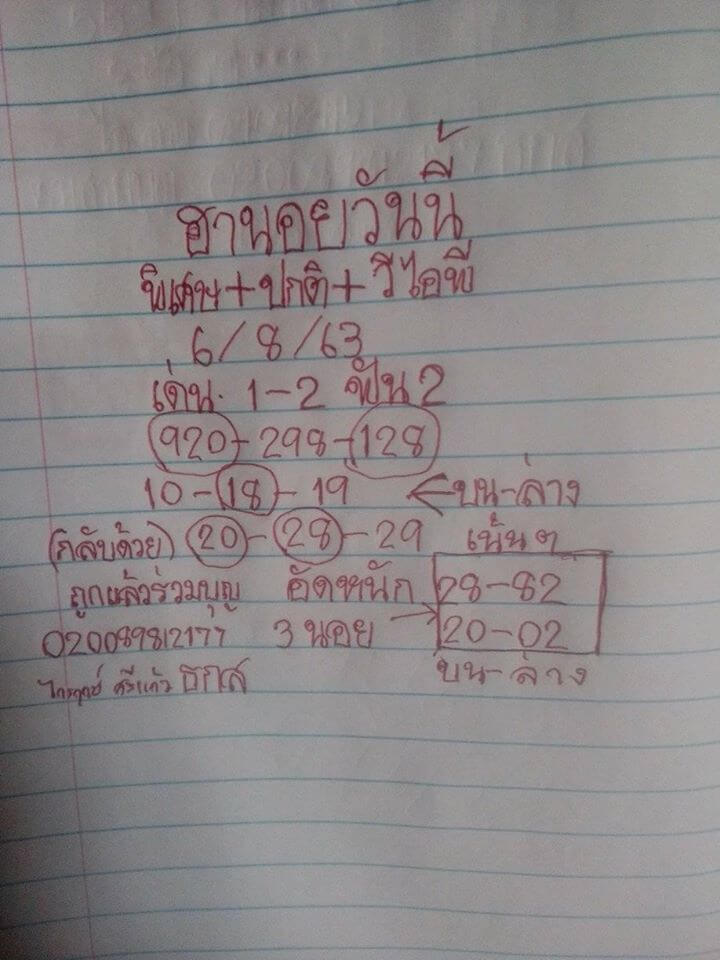 ฮานอยวันนี้
พิเศษ+ปกติ+วีไอพี
6/8/63
เด่น. 1-2 ฟัน2
920-298-128
10-18-19 ←บน-ล่าง
(กลับด้วย) 20-28-29 เน้นๆ
ถูกแล้วร่วมบุญ อัดหนัก 28-82
020089812177 3 นอย → 20-02
ศรีแก้ว ธกส บน-ล่าง